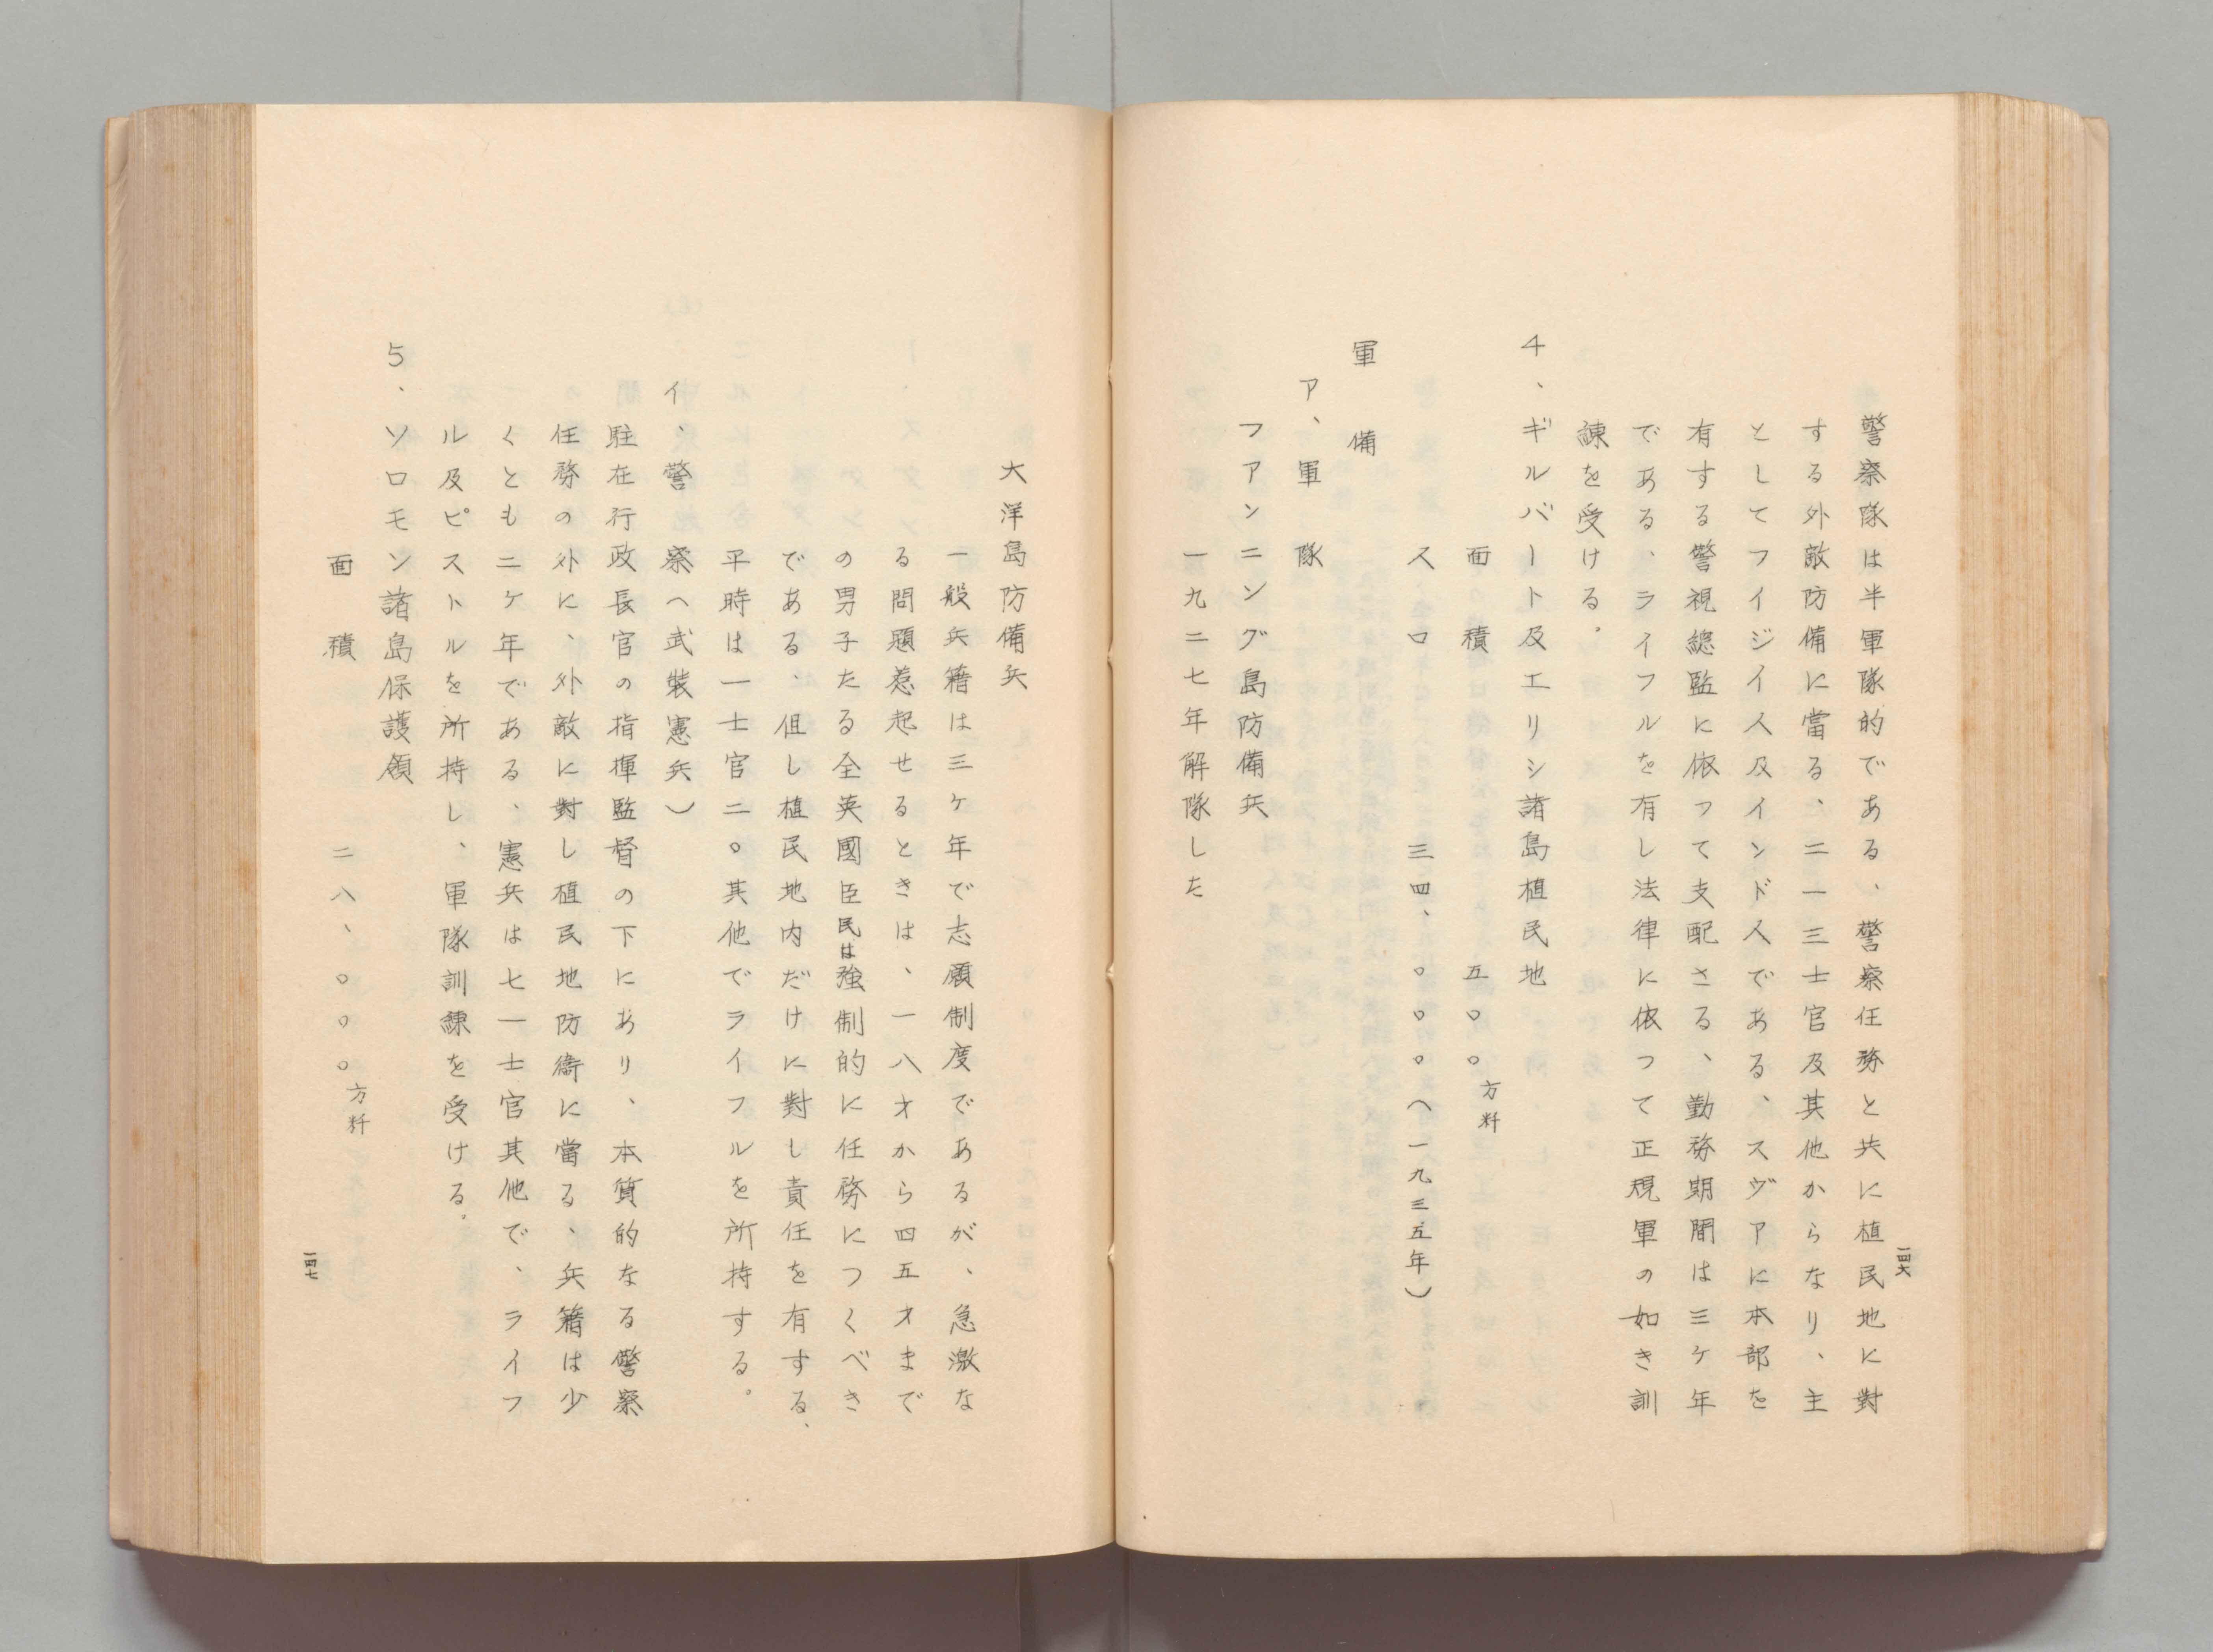 警察隊は半軍隊的である、警察任務と共に植民地に對
する外敵防備に當る、二一三士官及其他からなり、主
としてフイジイ人及インド人である、スヴアに本部を
有する警視總監に依つて支配さる、勤務期間は三ケ年
である、ライフルを有し法律に依つて正規軍の如き訓
練を受ける。
4、ギルバート及エリシ諸島植民地
面積 五〇〇方粁
人口 三四、〇〇〇(一九三五年)
軍備
ア、軍隊
フアンニング島防備兵
一九二七年解隊した
一四六
大洋島防備兵
一般兵籍は三ケ年で志願制度であるが、急激な
る問題惹起せるときは、一八才から四五才まで
の男子たる全英國臣民は強制的に任務につくべき
である、但し植民地内だけに對し責任を有する、
平時は一士官二〇其他でライフルを所持する。
イ、警察(武裝憲兵)
駐在行政長官の指揮監督の下にあり、本質的なる警察
任務の外に、外敵に對し植民地防衛に當る、兵籍は少
くとも二ケ年である、憲兵は七一士官其他で、ライフ
ル及ピストルを所持し、軍隊訓練を受ける。
5、ソロモン諸島保護領
面積 二八、〇〇〇方粁
一四七